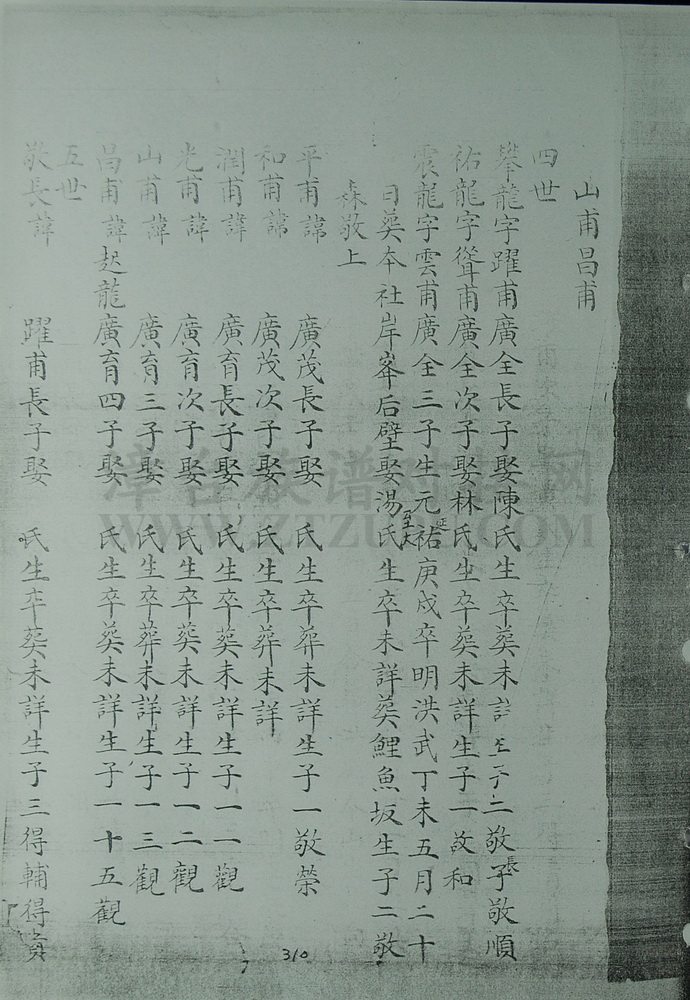 山甫昌甫
四世
攀龍字躍甫廣全長子娶陳氏生卒葵未詳生子二敬長子敬順
祐龍字從甫廣全次子娶林氏生卒葵未詳生子一敬和
震龍字雲甫廣全三子生元祐庚戌卒明洪武丁未五月二十
日葵本社岸峯后壁娶湯氏生卒未詳葵鯉魚坂生子二敬
森敬上
平甫諱 廣茂長子娶 氏生卒葬未詳生子一敬榮
和甫諱 廣茂次子娶 氏生卒葬未詳
潤甫諱 廣育長子娶 氏生卒葵未詳生子一一觀
光甫諱 廣育次子娶 氏生卒葵未詳生子一二觀
山甫諱 廣育三子娶 氏生卒葬未詳生子一三觀
昌甫諱起龍廣育四子娶 氏生卒葵未詳生子一十五觀
五世
敬長諱 躍甫長子娶 氏生卒葵未詳生子三得輔得
310
漳台族谱对接网
WWW.ZTZUPU.COM